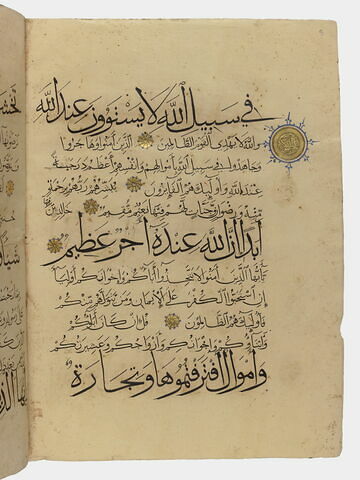 في سبيل الله لا يستوون عند الله
والله لا يهدي القوم الظالمين الذين آمنوا وهاجروا
وجاهدوا في سبيل الله بأموالهم وأنفسهم أعظم درجة
عند الله وأولئك هم الفائزون يبشرهم ربهم برحمة
منه ورضوان وجنات لهم فيها نعيم مقيم خالدين فيها
أبدا إن الله عنده أجر عظيم
يا أيها الذين آمنوا لا تتخذوا آباءكم وإخوانكم أولياء
إن استحبوا الكفر على الإيمان ومن يتولهم منكم
فأولئك هم الظالمون قل إن كان آباؤكم
وأبناؤكم وإخوانكم وأزواجكم وعشيرتكم
وأموال اقترفتموها وتجارة